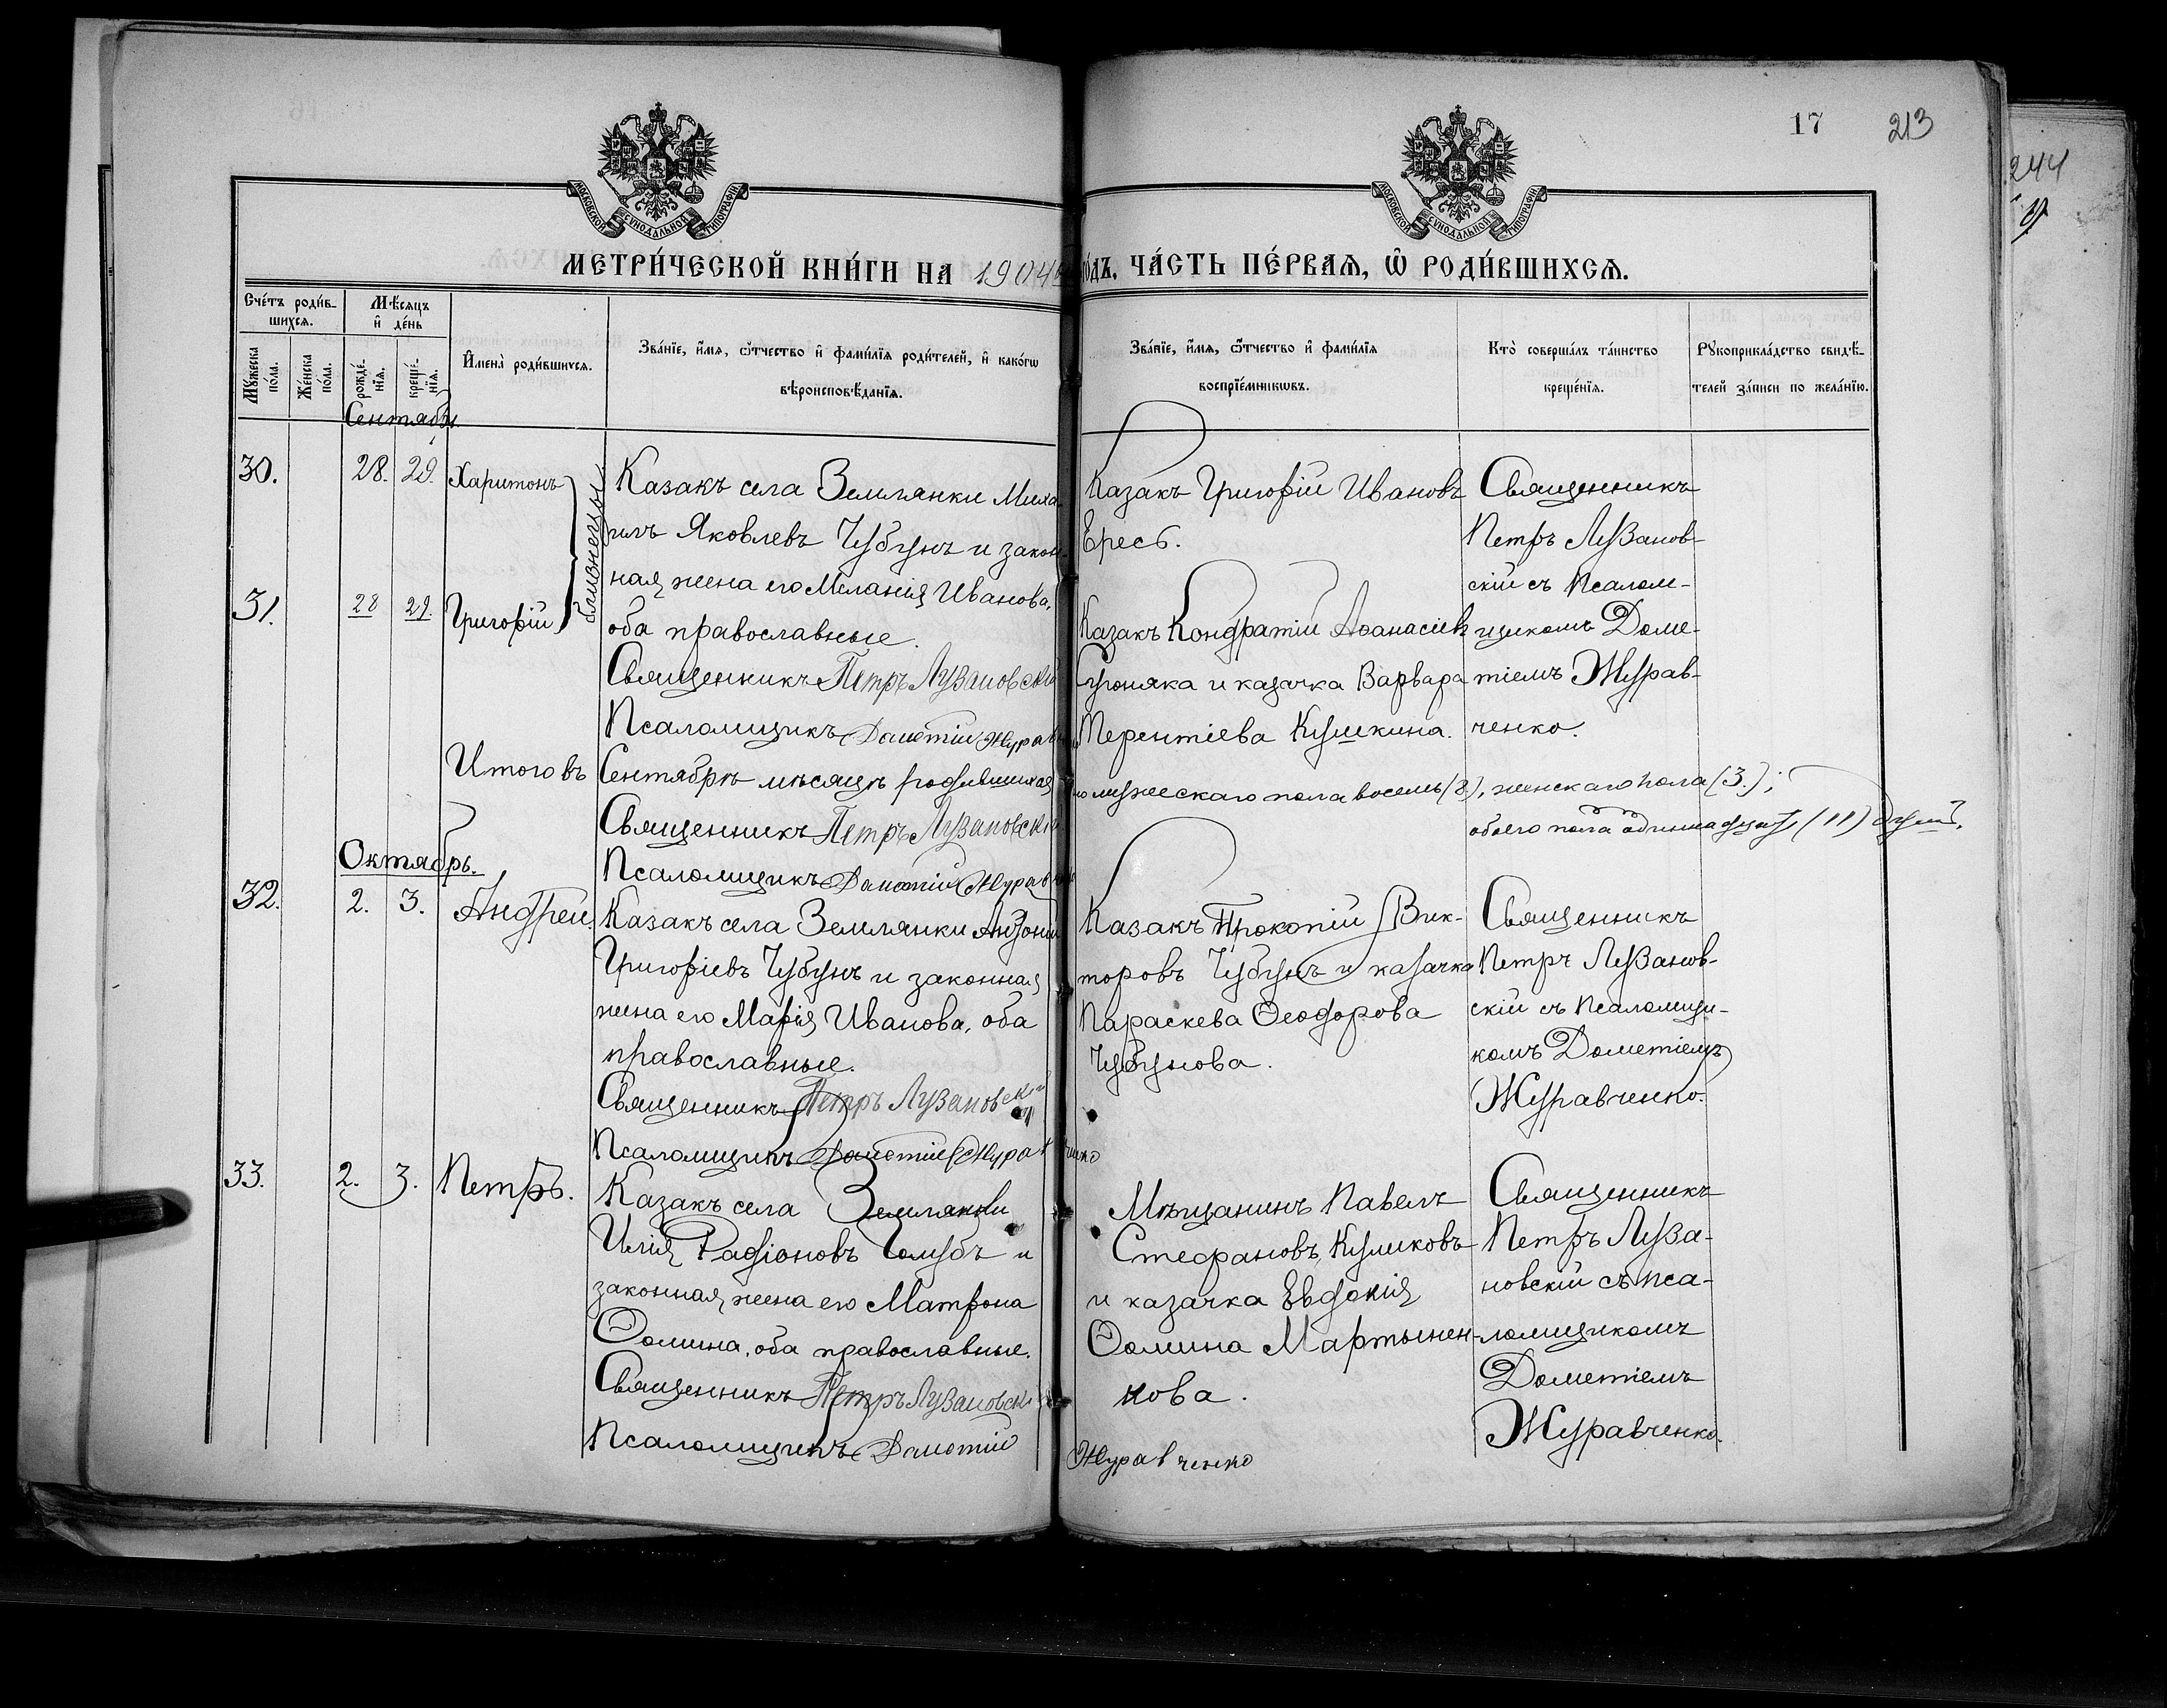 17 213
244
МОСКОВСКОЙ СУНОДАЛЬНОЙ ТИПОГРАФІИ
МОСКОВСКОЙ СУНОДАЛЬНОЙ ТИПОГРАФІИ
МЕТРИ́ЧЕСКОЙ КНИ́ГИ НА 1904 го́дъ, ЧА́СТЬ ПЕ́РВАЯ, Ѽ РОДИ́ВШИХСѦ.
Сче́тъ роди́в-
шихсѧ.
Мꙋ́жеска по́ла.
Же́нска по́ла.
Мѣ́сяцъ
и҆ де́нь
рожде́-
нїѧ.
креще́-
нїѧ.
И҆мена̀ роди́вшихсѧ.
Зва́нїе, и҆́мѧ, ѻ҆́тчество и҆ фами́лїѧ роди́телей, и҆ како́гѡ
вѣроисповѣ́данїѧ.
Зва́нїе, и҆́мѧ, ѻ҆́тчество и҆ фами́лїѧ
воспрїе́мникѡвъ.
Кто̀ соверша́лъ та́инство
креще́нїѧ.
Рꙋкоприкла́дство свидѣ́-
телей за́писи по жела́нїю.
Сентябрь.
30. 28. 29. Харитонъ
31. 28 29. Григорій
близнецы
Казакъ села Землянки Миха-
илъ Яковлевъ Чубунъ и закон-
ная жена его Меланія Иванова,
оба православные.
Священникъ Петръ Лузановскій
Псаломщикъ Дометій Журавченко
Казакъ Григорій Ивановъ
Ересь.
Казакъ Кондратій Аѳанасіевъ
и казачка Варвара
Терентіева Кушкина.
Священникъ
Петръ Лузанов-
скій съ псалом-
щикомъ Доме-
тіемъ Журав-
ченко.
Итого въ Сентябрѣ мѣсяцѣ родившихся мужескаго пола восемь (8), женскаго пола (3.);
обоего пола одиннадцать (11) душъ.
Священникъ Петръ Лузановскій
Псаломщикъ Дометій Журавченко
Октябрь.
32. 2. 3. Андрей.
Казакъ села Землянки Антоній
Григоріевъ Чубунъ и законная
жена его Марія Иванова, оба
православные.
Священникъ Петръ Лузановскій
Псаломщикъ Дометій Журавченко
Казакъ Прокопій Вик-
торовъ Чубунъ и казачка
Параскева Ѳеодорова
Чубунова.
Священникъ
Петръ Лузанов-
скій съ псаломщи-
комъ Дометіемъ
Журавченко.
33. 2. 3. Петръ.
Казакъ села Землянки
Илія Радіоновъ Голубъ и
законная жена его Матрона
Ѳомина, оба православные.
Священникъ Петръ Лузановскій
Псаломщикъ Дометій Журавченко
Мѣщанинъ Павелъ
Стефановъ Куликовъ
и казачка Евдокія
Ѳомина Мартынен-
кова.
Священникъ
Петръ Луза-
новскій съ пса-
ломщикомъ
Дометіемъ
Журавченко.